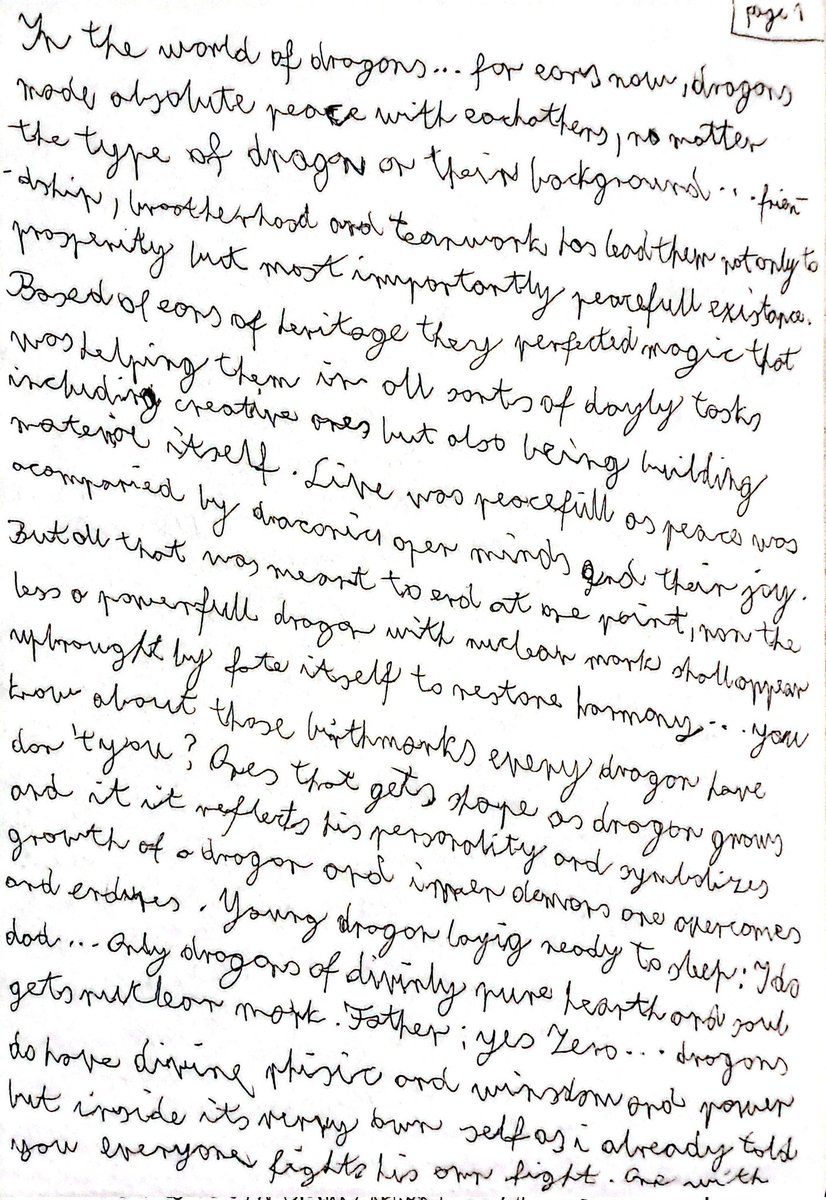 page 1
In the world of dragons... for eons now, dragons
made absolute peace with eachothers, no matter
the type of dragon or their background... frien-
-dship, brootherhood and teamwork has lead them not only to
prosperity but most importantly peacefull existance.
Based of eons of heritage they perfected magic that
was helping them in all sorts of dayly tasks
including creative ones but also being building
material itself. Live was peacefull as peace was
acompanied by draconic open minds and their joy.
But all that was meant to end at one point, non the
less a powerfull dragon with nuclear mark shall appear
upbrought by fate itself to restore harmony... you
know about those birthmarks every dragon have
don't you? Ones that gets shape as dragon grows
and it it reflects his personality and symbolizes
growth of a dragon and inner demons one overcomes
and endures. Young dragon layig ready to sleep: I do
dad... Only dragons of divinly pure hearth and soul
gets nuclear mark. Father; yes Zero... dragons
do have divine phisic and winsdom and power
but inside its verry own self as i already told
you everyone fights his own fight. One with